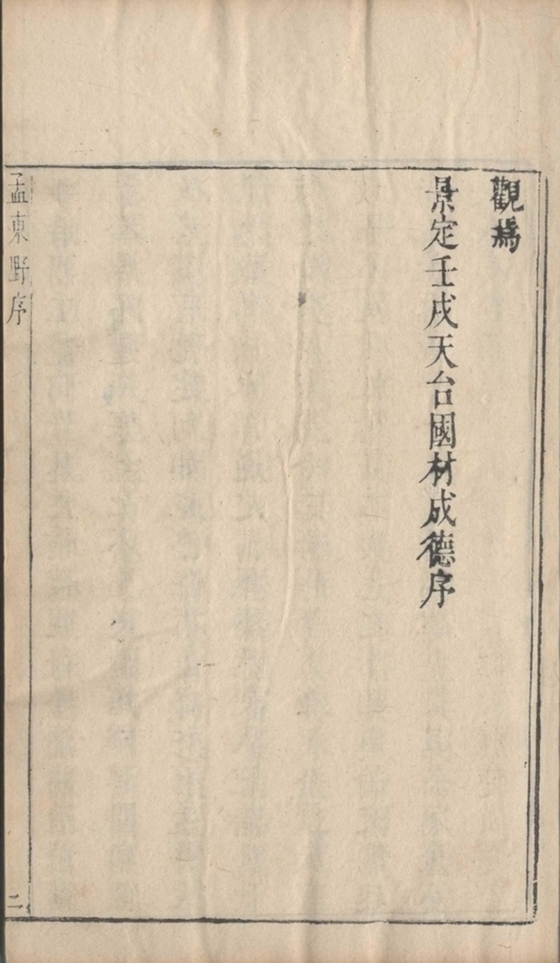 觀焉
景定壬戌天台國材成德序
孟東野序
二